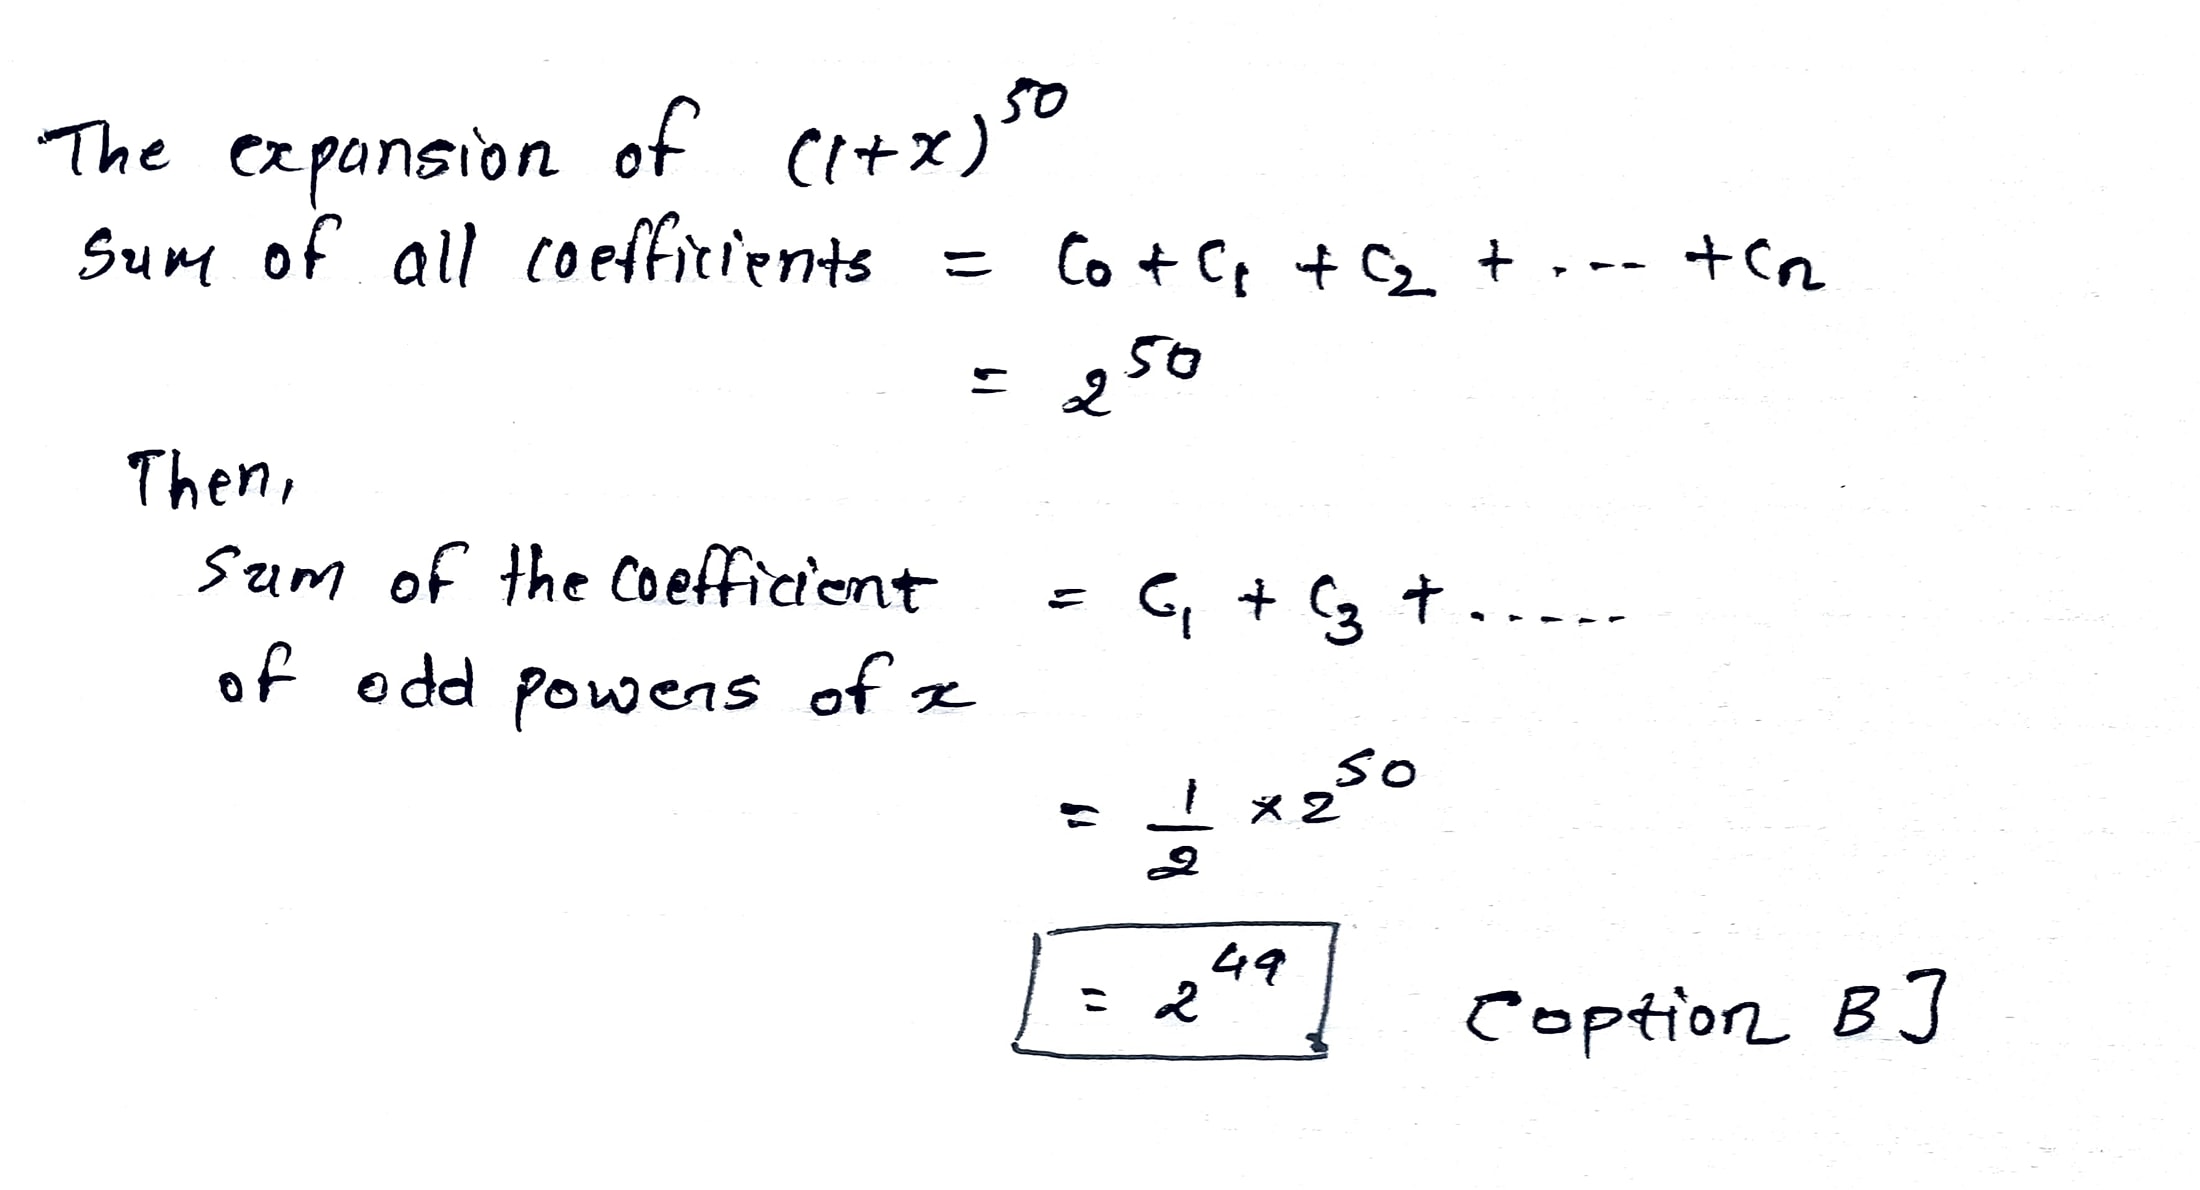 The expansion of (1+x)^50
Sum of all coefficients = C0 + C1 + C2 + . . -- + Cn
= 2^50
Then,
Sum of the coefficient = C1 + C3 + ......
of odd powers of x
= 1/2 × 2^50
= 2^49 [option B]